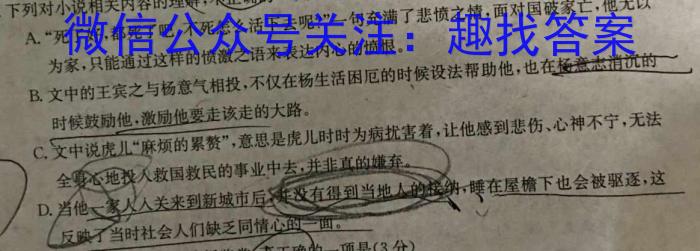 下列对小说相关内容的理解，不正确的
A.“死了，都死了，不死怎么活下去呢！”一句充满了悲愤之情，面对国破家亡，他无以
微信公众号关注：趣找答案
为家，只能通过这样的愤激之语来表达内心的愤恨。
B. 文中的王宾之与杨意气相投，不仅在杨生活困厄的时候设法帮助他，也在杨意志消沉的
时候鼓励他，激励他要走该走的大路。
C. 文中说虎儿“麻烦的累赘”，意思是虎儿时时为病扰害着，让他感到悲伤、心神不宁，无法
全身心地投入救国救民的事业中去，并非真的嫌弃。
D. 当他一家人入关来到新城市后，并没有得到当地人的接纳，睡在屋檐下也会被驱逐，这
反映了当时社会人们缺乏同情心的一面。
正确的一项是(3分)